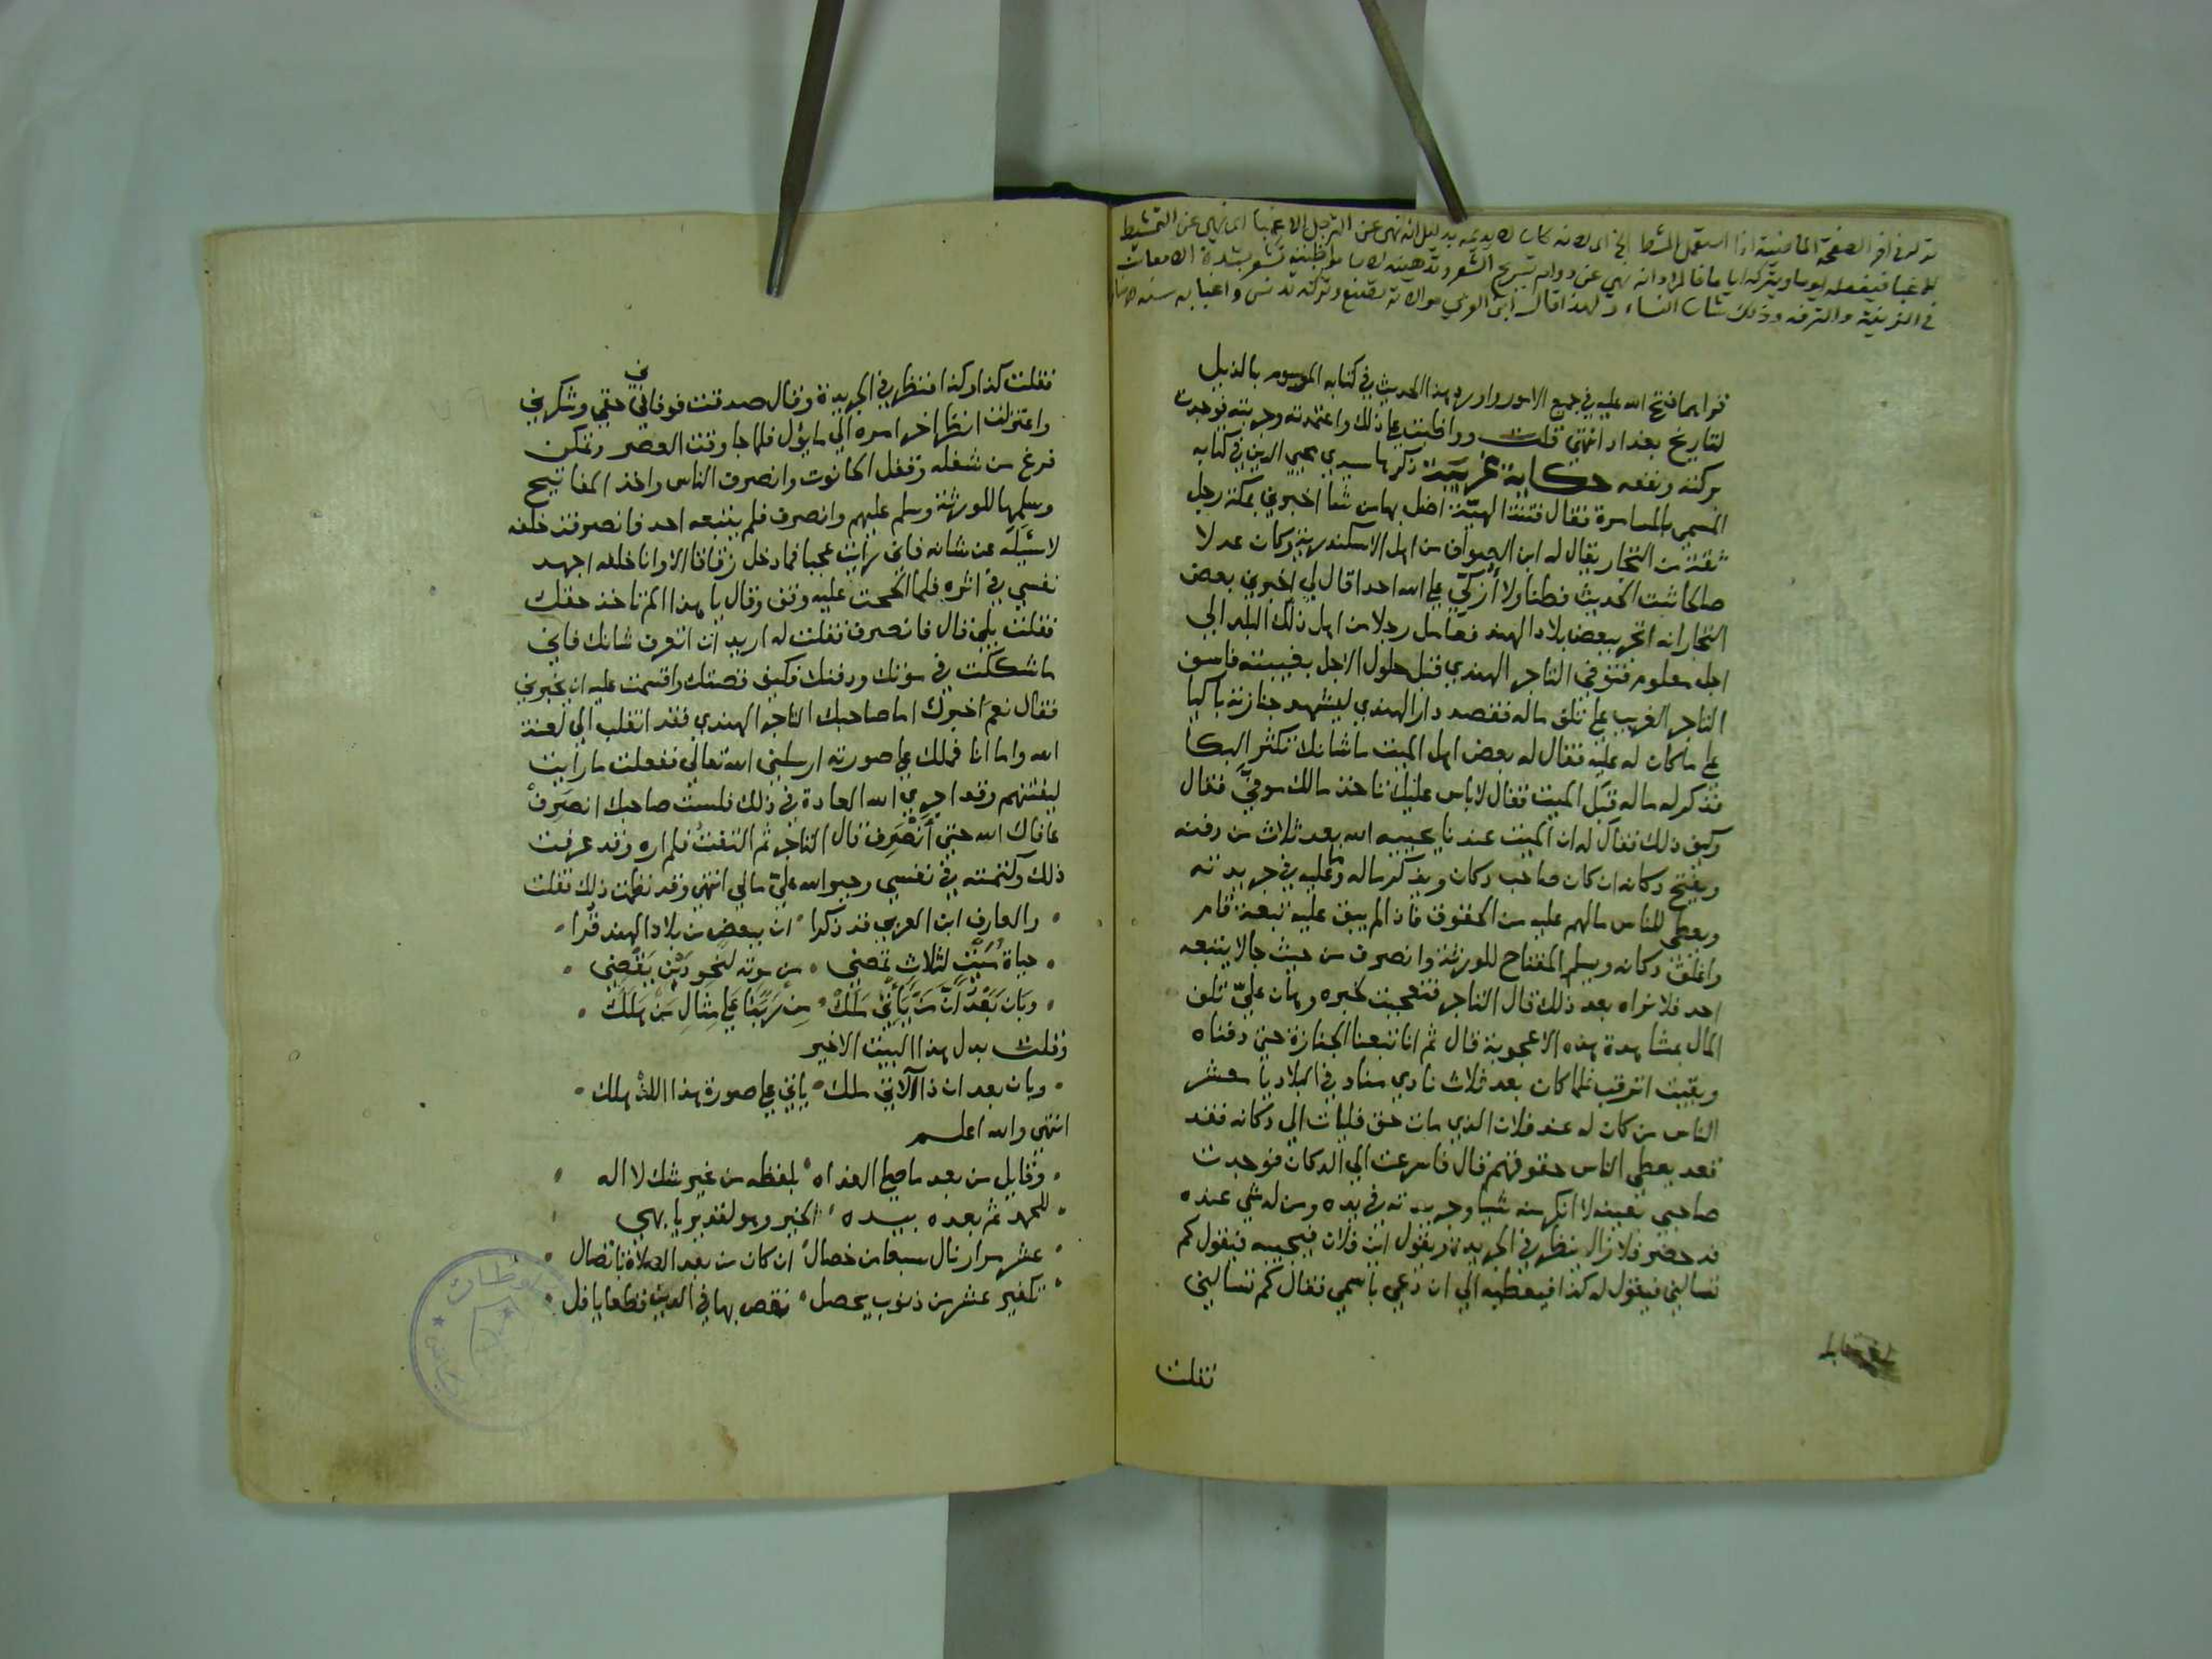 قوله في اخر الصفحة الماضية اذا استعمل المشط الخ اي لانه كان لا يديمه بدليل انه نهى عن الترجل الا غبا اي نهي عن التمشيط
الا غبا فيفعله يوما ويتركه اياما فالمراد انه نهي عن دوام تسريح الشعر وتدهينه لان مواظبته تشعر بشدة الامعان
في الزينة والترفه وذلك شان النساء ولهذا قال ابن العربي موالاته تصنع وتركه تدنس واغبابه سنة
قوا بما فتح الله عليه في جميع الامور واورد هذا الحديث في كتابه الموسوم بالذيل
لتاريخ بغداد انتهي قلت وواظبت علي ذلك واعتمدته وجربته فوجدت
بركته ونفعه حكاية غريبة ذكرها سيدي محيي الدين في كتابه
المسمي بالمسامرة فقال فتنة الهية اضل بها من شا اخبرني بمكة رجل
ثقة من التجار يقال له ابن الصواف من اهل الاسكندرية وكان عدلا
صالحا ثبت الحديث فطنا ولا أزكي علي الله احدا قال لي اخبرني بعض
التجار انه اتجر ببعض بلاد الهند فعامل رجلا من اهل ذلك البلد الي
اجل معلوم فتوفي التاجر الهندي قبل حلول الاجل بغيبته فاسف
التاجر الغريب علي تلف ماله فقصد دار الهندي ليشهد جنازته باكيا
علي ماكان له عليه فقال له بعض اهل الميت ما شانك تكثر البكا
فذكر له ماله قبل الميت فقال لاباس عليك تاخذ مالك موفي فقال
وكيف ذلك فقال له ان الميت عندنا يحييه الله بعد ثلاث من دفنه
ويفتح دكانه ان كان صاحب دكان ويذكر ماله وما عليه في جريدته
ويعطي للناس مالهم عليه من الحقوق فاذا لم يبق عليه تبعة قام
واغلق دكانه ويسلم المفتاح للورثة وانصرف من حيث جا لا يتبعه
احد فلا نراه بعد ذلك قال التاجر فتعجبت لخبره وهان علي تلف
المال بمشاهدة هذه الاعجوبة قال ثم انا تبعنا الجنازة حتي دفناه
وبقيت اترقب فلما كان بعد ثلاث نادي مناد في البلاد يا معشر
الناس من كان له عند فلان الذي مات حق فليات الي دكانه فقد
قعد يعطي الناس حقوقهم قال فاسرعت الي الدكان فوجدت
صاحبي بعينه لا انكر منه شيا وجريدته في يده ومن له شي عنده
قد حضر فلا زال ينظر في الجريدة ويقول اين فلان فيجيبه فيقول كم
تسالني فيقول له كذا فيعطيه الي ان دعي باسمي فقال كم تسالني
فقلت
فقلت كذا وكذا فنظر في الجريدة وقال صدقت فوفاني حقي وشكرني
واعتزلت انظر اخر امره الي ما يؤل فلما جا وقت العصر وتمكن
فرغ من شغله وقفل الحانوت وانصرف الناس واخذ المفاتيح
وسلمها للورثة وسلم عليهم وانصرف فلم يتبعه احد فانصرفت خلفه
لاسئله عن شانه فاني رأيت عجبا فما دخل زقاقا الا وانا خلفه اجهد
نفسي في اثره فلما الححت عليه وقف وقال يا هذا الم تاخذ حقك
فقلت بلي قال فانصرف فقلت له اريد ان اتعرف شانك فاني
ما شككت في موتك ودفنك فكيف قصتك واقسمت عليه ان يخبرني
فقال نعم اخبرك اما صاحبك التاجر الهندي فقد انقلب الي لعنة
الله واما انا فملك علي صورته ارسلني الله تعالي ففعلت ما رأيت
ليفتنهم وقد اجري الله العادة في ذلك فلست صاحبك انصرف
عافاك الله حتي أنصرف قال التاجر ثم التفت فلم اره وقد عرفت
ذلك وكتمته في نفسي وجبر الله علي مالي انتهي وقد نظمت ذلك فقلت
والعارف ابن العربي قد ذكرا ان ببعض من بلاد الهند قرا
حياة ميت لثلاث تمضي من موته لنحو دين يقضي
وبان بعد ان من يأتي ملك من ربنا علي مثال من هلك
وقلت بدل هذا البيت الاخير
وبان بعد ان ذا الاتي ملك يأتي علي صورة هذا اللذ هلك
انتهي والله اعلم
وقايل من بعد ما صلي الغداه بلفظه من غير شك لا اله
للحمد ثم بعده بيده الخير وهو لقدير يا بهي
عشر مرار نال سبعا من خصال ان كان من بعد الصلاة باتصال
تكفير عشر من ذنوب يحصل نقص بها في الدين قطعا يا فل